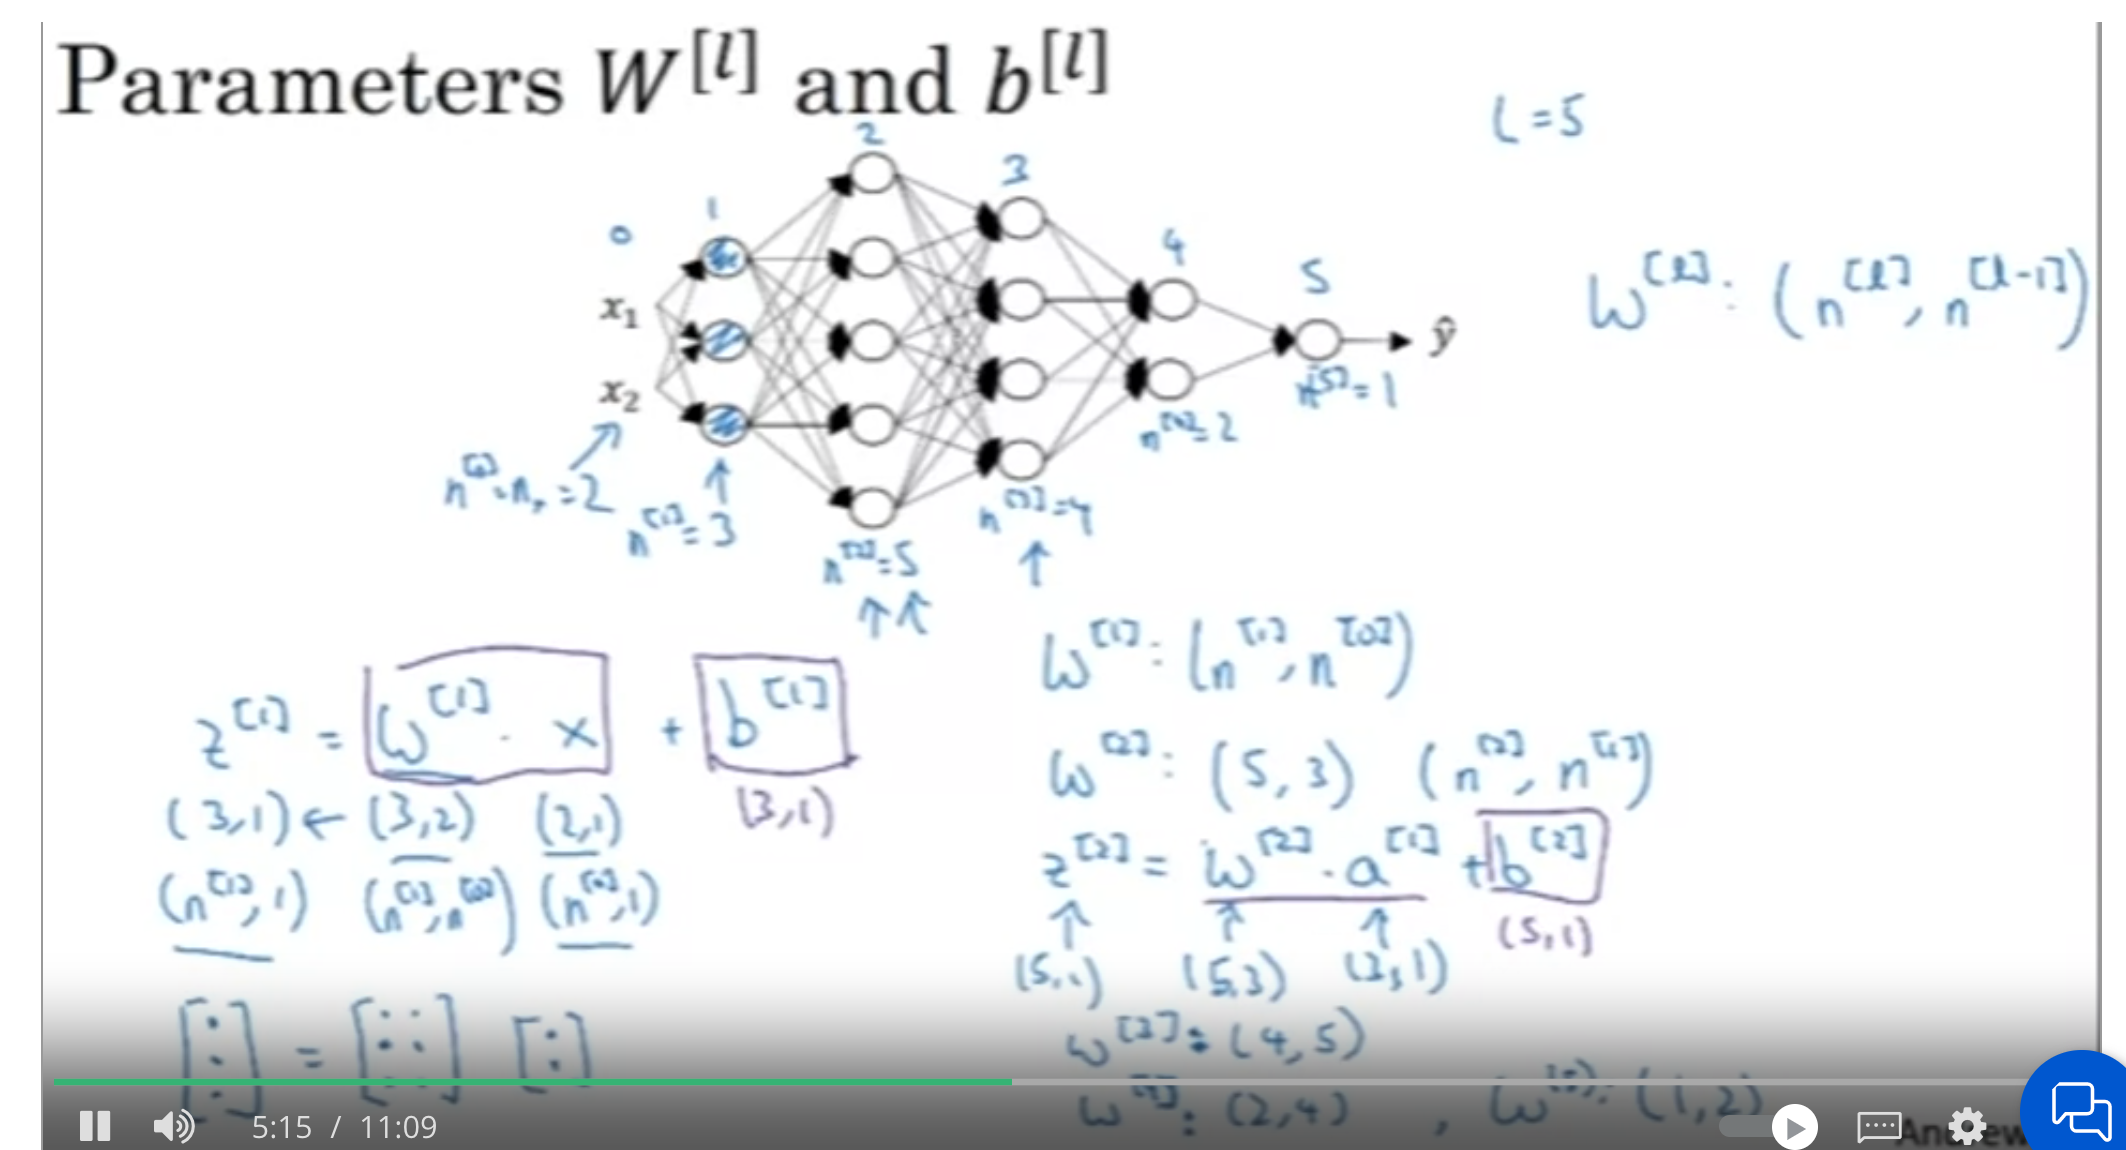 Parameters W^[l] and b^[l]
L = 5
0 1 2 3 4 5
x₁
x₂
ŷ
W^[l] : (n^[l], n^[l-1])
n^[0] = nₓ = 2
n^[1] = 3
n^[2] = 5
n^[3] = 4
n^[4] = 2
n^[5] = 1
z^[1] = W^[1] · x + b^[1]
(3,1) ← (3,2) (2,1) (3,1)
(n^[1], 1) (n^[1], n^[0]) (n^[0], 1)
[: .] = [: :] [:]
W^[1] : (n^[1], n^[0])
W^[2] : (5, 3) (n^[2], n^[1])
z^[2] = W^[2] · a^[1] + b^[2]
(5,1) (5,3) (3,1) (5,1)
W^[3] : (4, 5)
W^[4] : (2, 4) , W^[5] : (1, 2)
5:15 / 11:09
Andrew